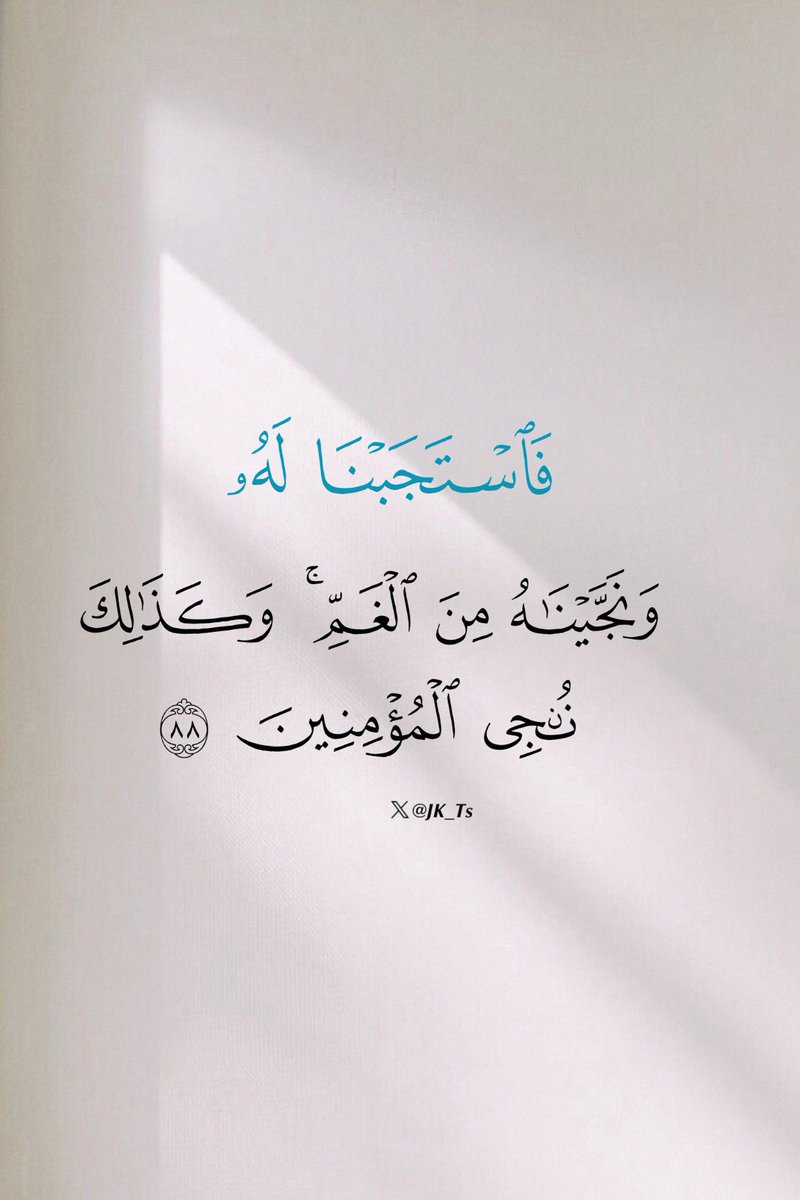 فَٱسْتَجَبْنَا لَهُۥ
وَنَجَّيْنَٰهُ مِنَ ٱلْغَمِّ ۚ وَكَذَٰلِكَ
نُۨجِى ٱلْمُؤْمِنِينَ ٨٨
𝕏 @JK_Ts